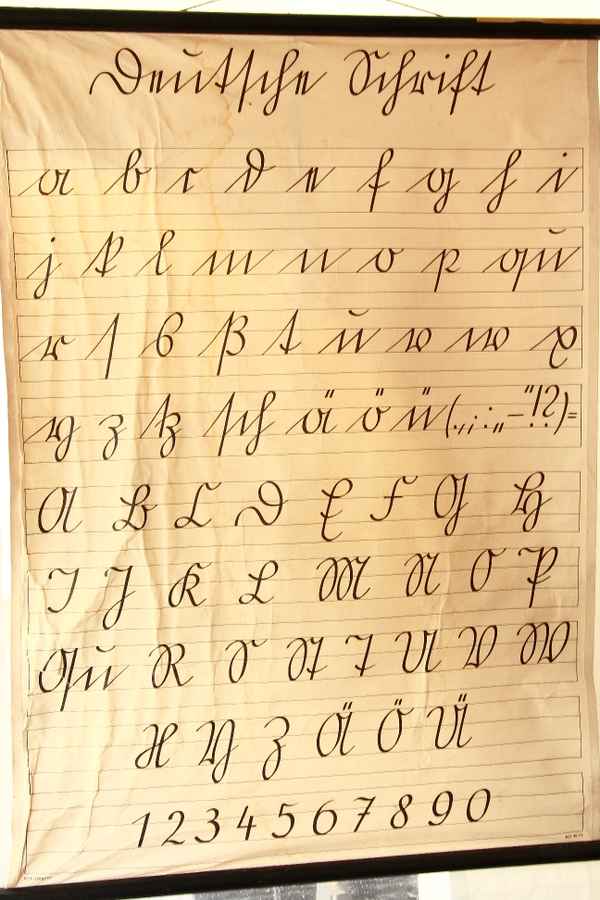 Deutsche Schrift
a b c d e f g h i
j k l m n o p qu
r ſ s ß t u v w x
y z tz ſch ä ö ü (.,;:„–"!?)=
A B C D E F G H
I J K L M N O P
Qu R S St T U V W
X Y Z Ä Ö Ü
1 2 3 4 5 6 7 8 9 0